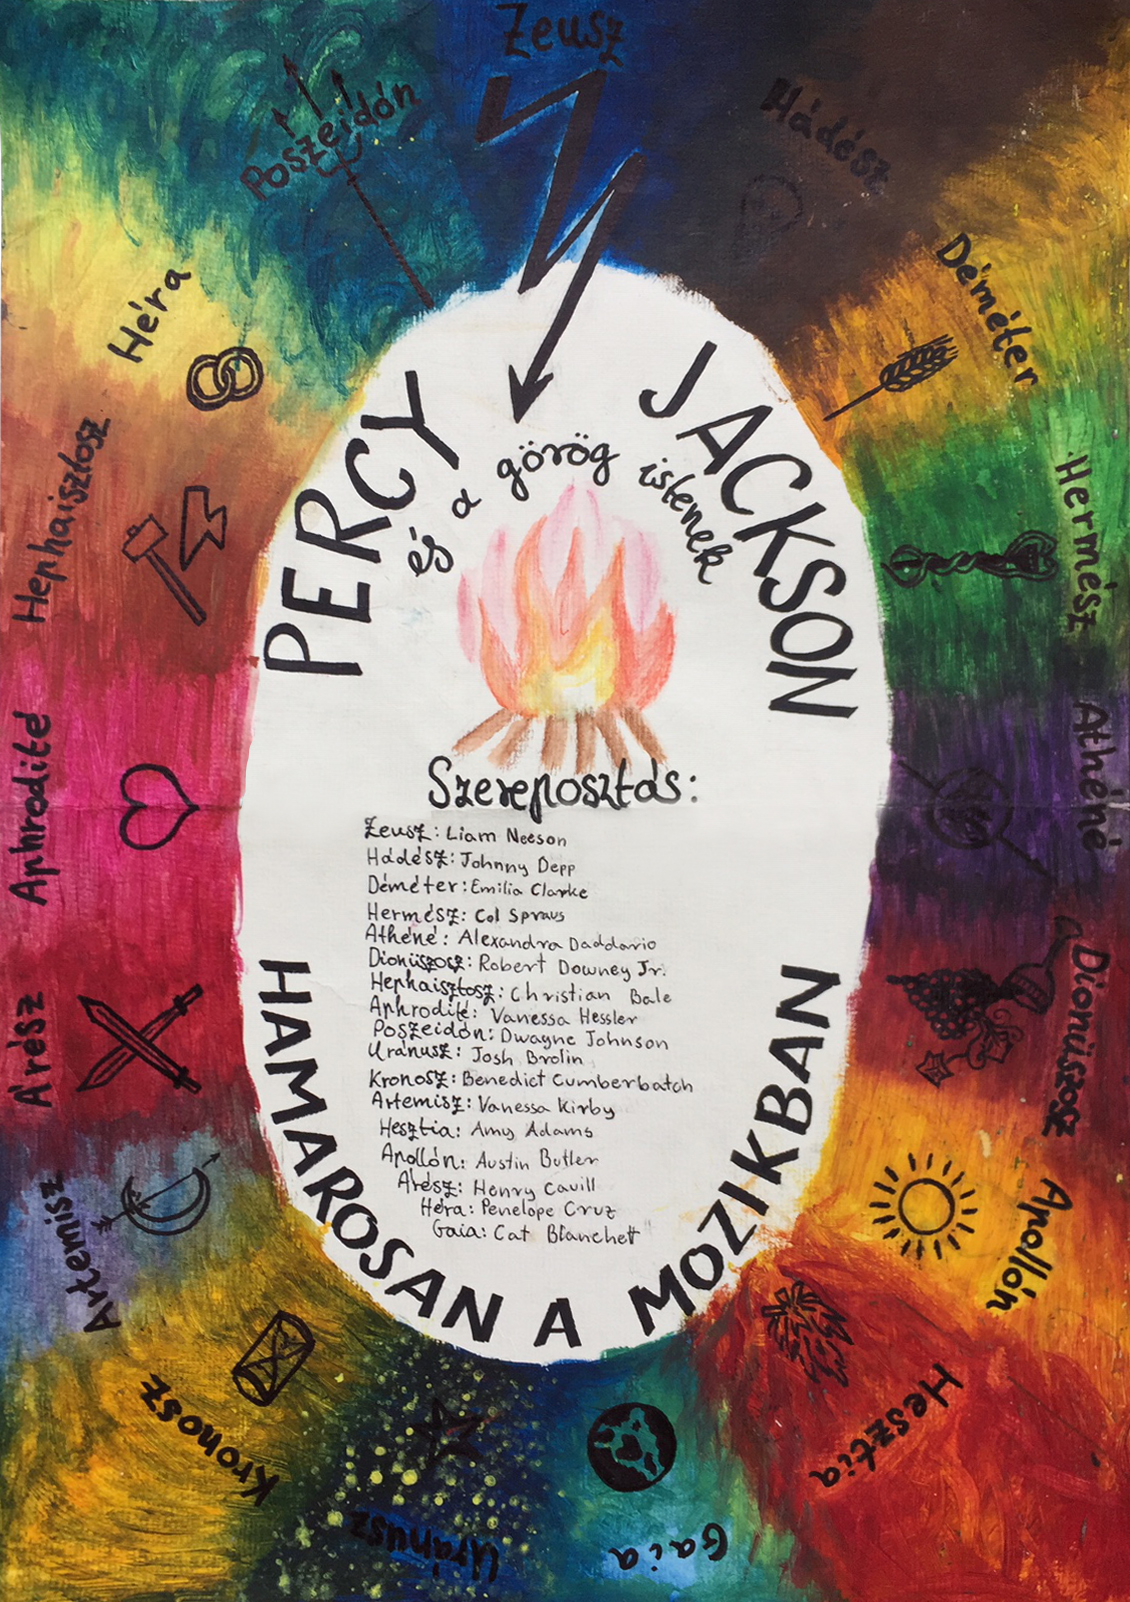 Zeusz
Poszeidón
Hádész
Héra
Déméter
Hephaisztosz
Hermész
Aphrodité
Athéné
Árész
Dionüszosz
Artemisz
Apollón
Kronosz
Hesztia
Uránusz
Gaia
PERCY JACKSON
és a görög istenek
Szereposztás:
Zeusz: Liam Neeson
Hádész: Johnny Depp
Déméter: Emilia Clarke
Hermész: Col Spraus
Athéné: Alexandra Daddario
Dionüszosz: Robert Downey Jr.
Hephaisztosz: Christian Bale
Aphrodité: Vanessa Hessler
Poszeidón: Dwayne Johnson
Uránusz: Josh Brolin
Kronosz: Benedict Cumberbatch
Artemisz: Vanessa Kirby
Hesztia: Amy Adams
Apollón: Austin Butler
Árész: Henry Cavill
Héra: Penelope Cruz
Gaia: Cat Blanchett
HAMAROSAN A MOZIKBAN